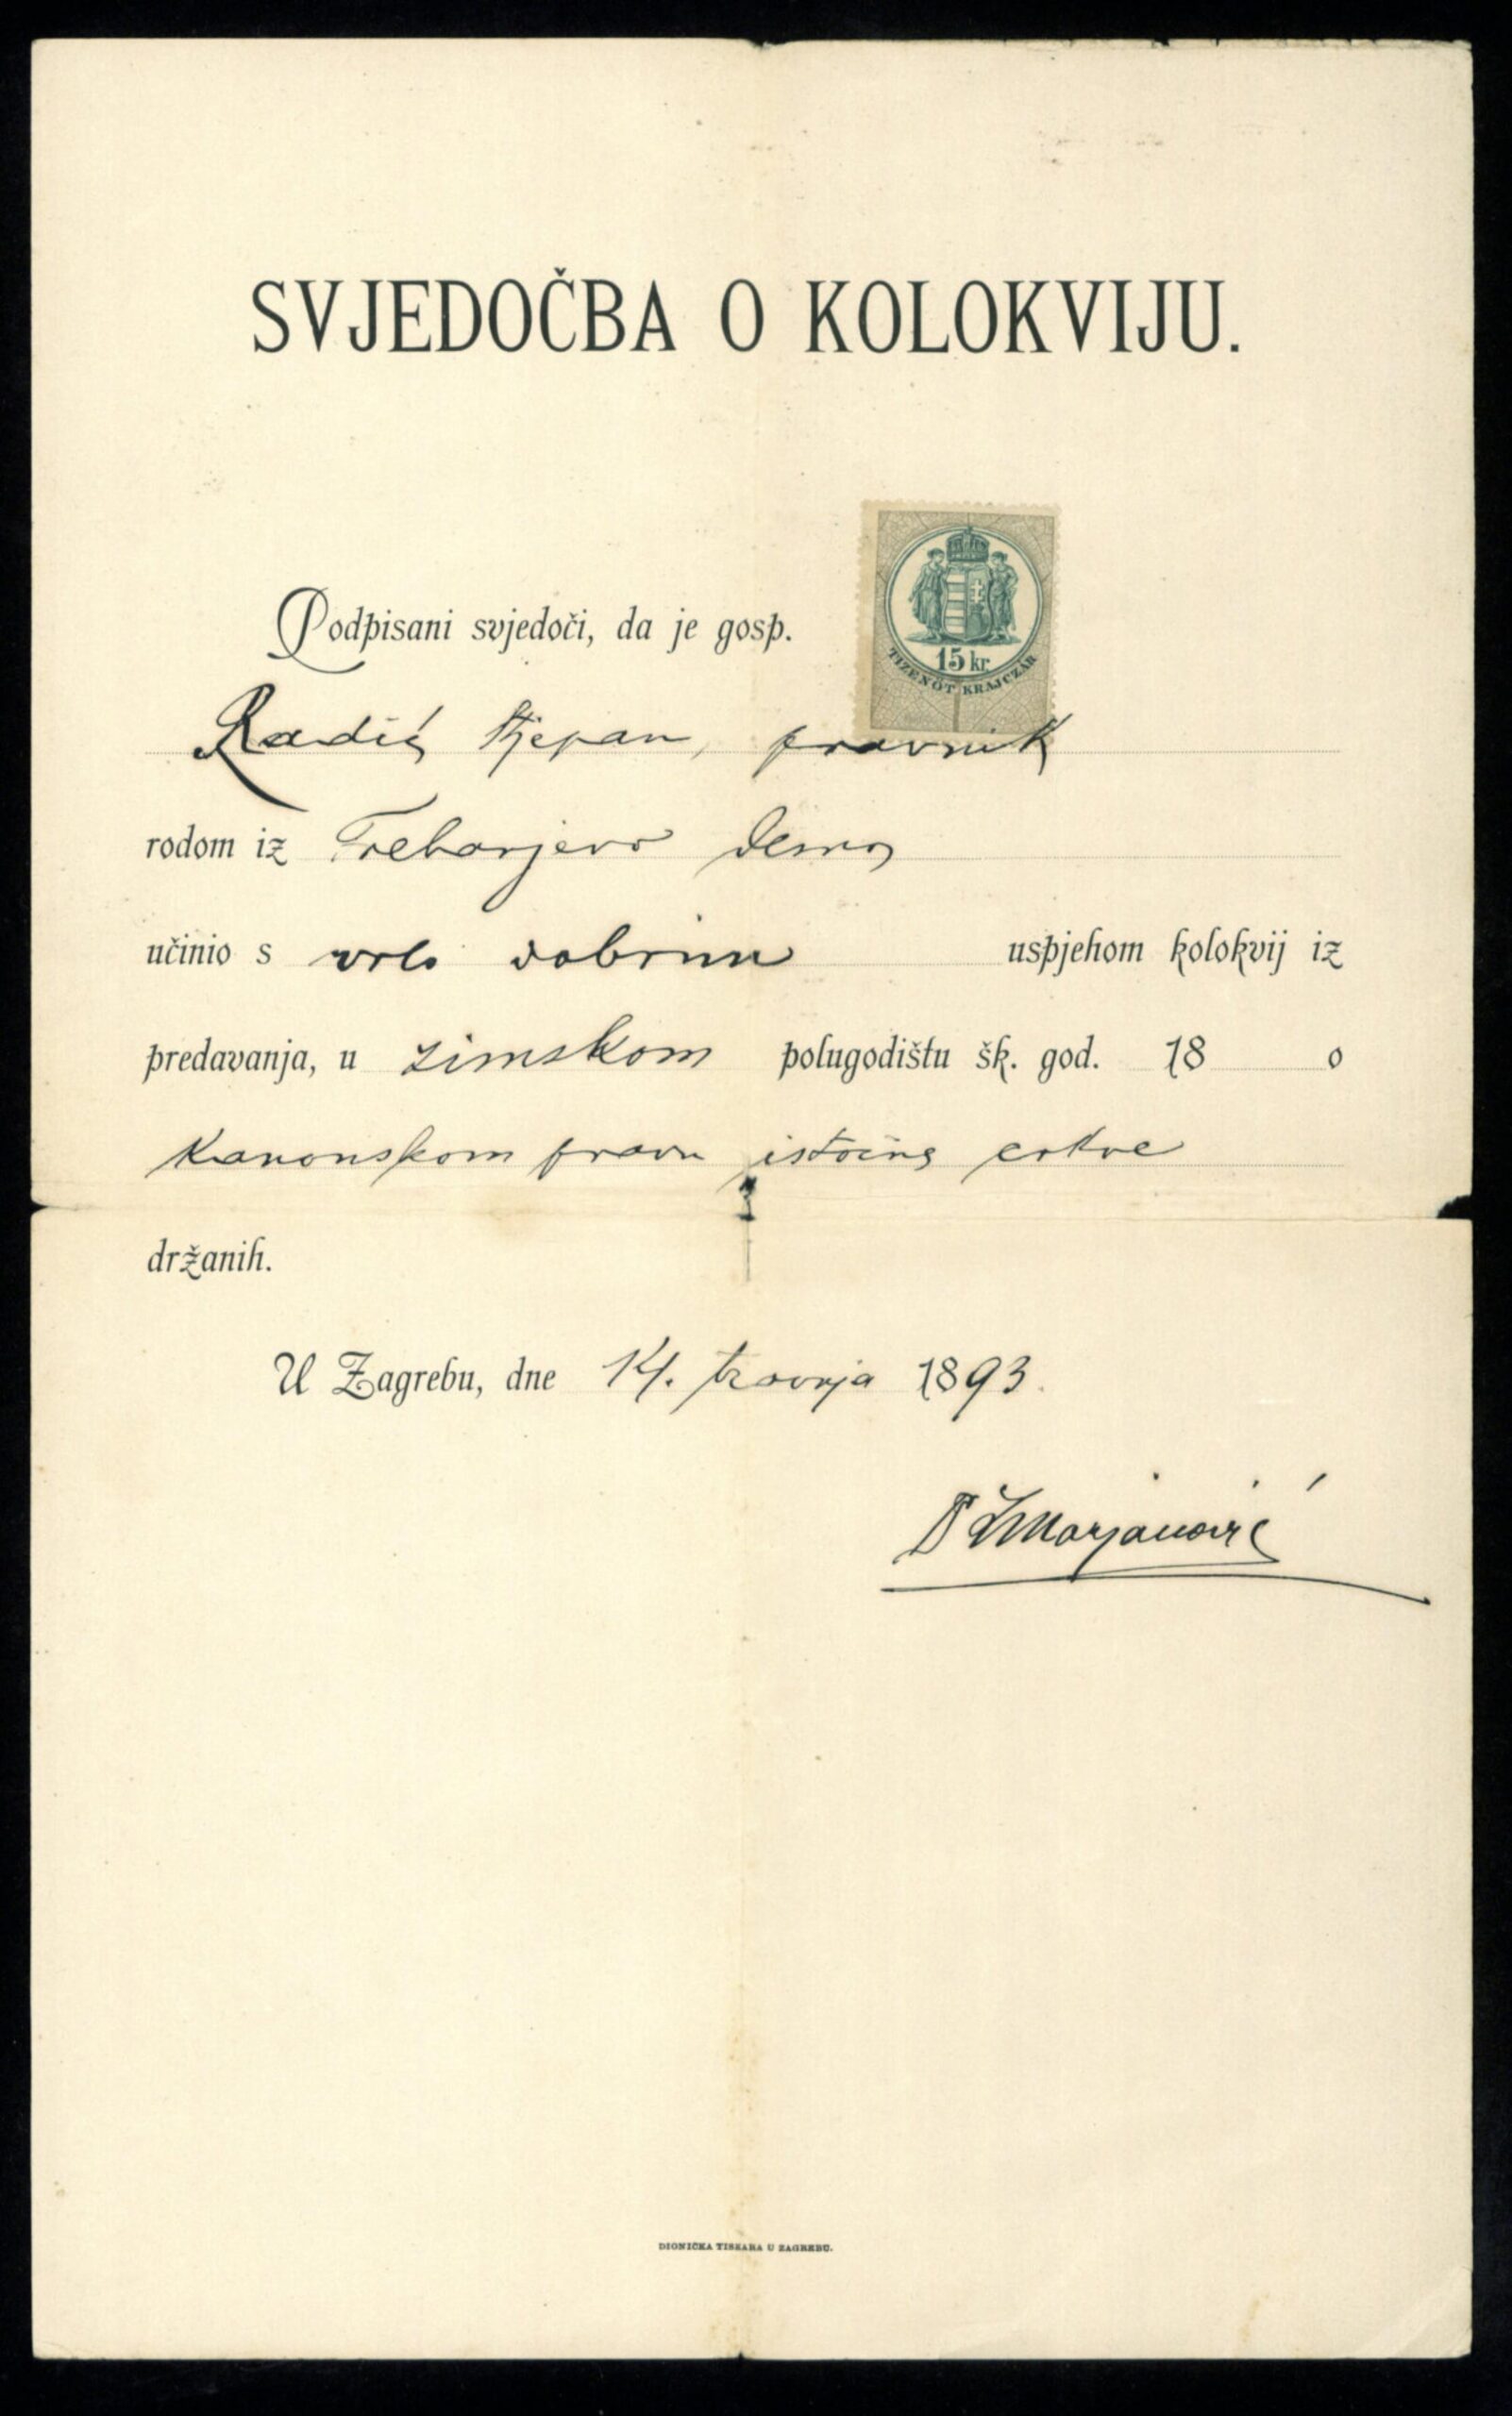 SVJEDOČBA O KOLOKVIJU.
15 kr.
TIZENÖT KRAJCZÁR
Podpisani svjedoči, da je gosp.
Radić Stjepan, pravnik
rodom iz Trebarjevo Desno
učinio s vrlo dobrim uspjehom kolokvij iz
predavanja, u zimskom polugodištu šk. god. 18 o
kanonskom pravu istočne crkve
držanih.
U Zagrebu, dne 14. travnja 1893.
Dr Marjanović
DIONIČKA TISKARA U ZAGREBU.